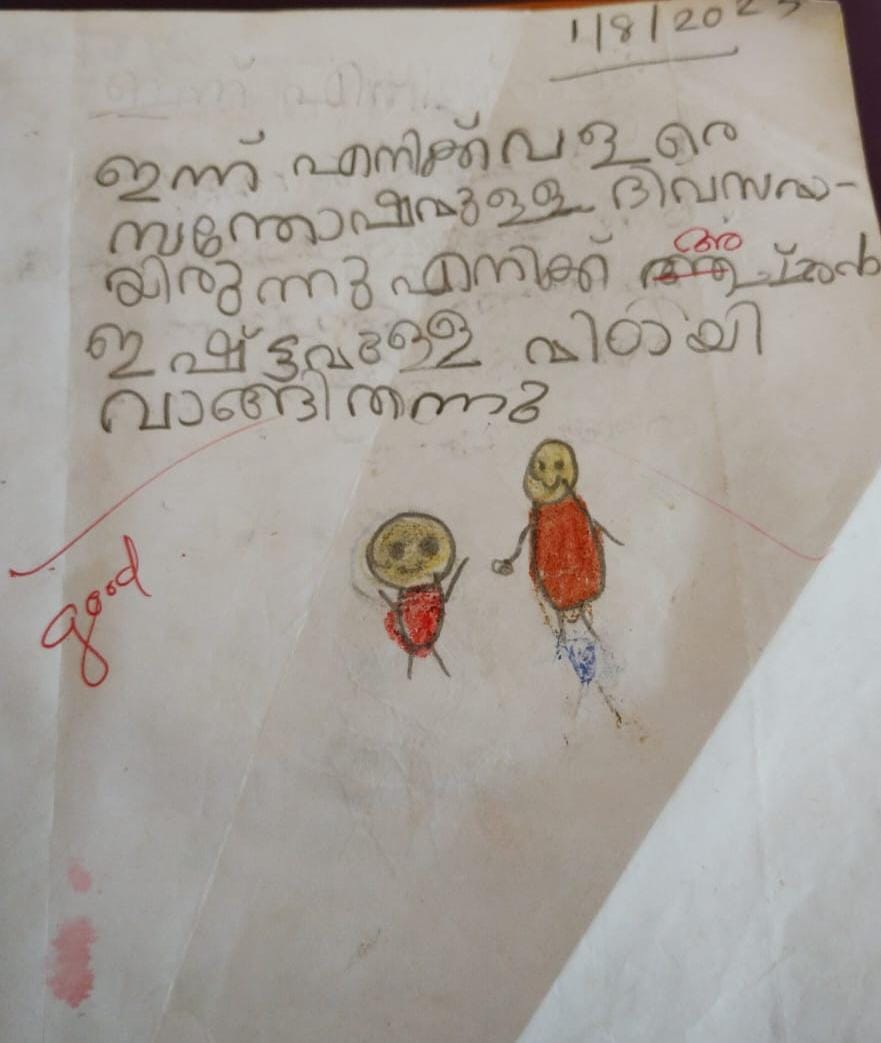 1/8/2023
ഇന്ന് എനിക്ക് വളരെ
സന്തോഷമുള്ള ദിവസമാ-
യിരുന്നു എനിക്ക് അ
ഇഷ്ട്ടമുള്ള മിഠായി
വാങ്ങി തന്നു
good